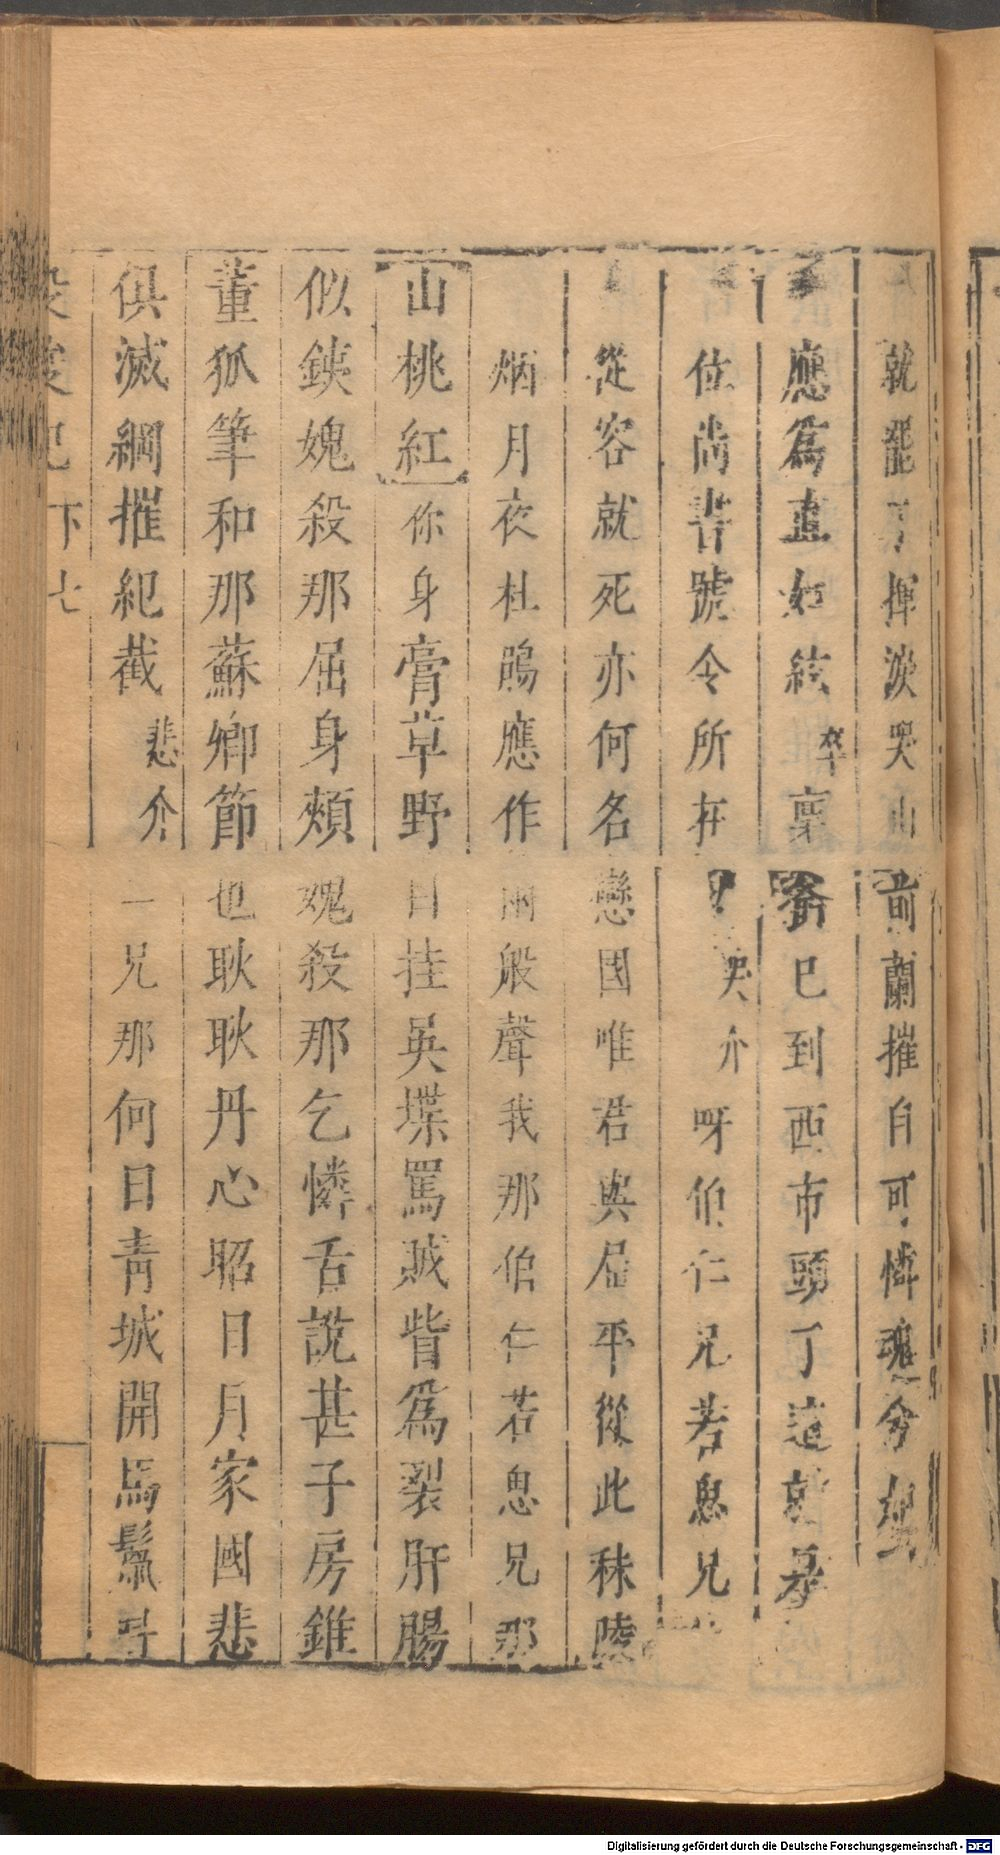 就罷了揮淚哭 前蘭摧自可憐魂分
應爲直如絃 卒稟 爺已到西市頭了這就是
位尚書號令所在 哭介 呀伯仁兄若思兄
從容就死亦何名 戀國唯君與屈平從此秣陵
烟月夜杜鵑應作兩般聲我那伯仁若思兄那
山桃紅 你身膏草野 目挂吳堞罵賊眥爲裂肝腸
似鋏媿殺那屈身頰 媿殺那乞憐舌說甚子房錐
董狐筆和那蘇卿節 也耿耿丹心昭日月家國悲
俱滅綱摧紀截 悲介 二兄那何日青城開馬鬣
下 七
Digitalisierung gefördert durch die Deutsche Forschungsgemeinschaft - DFG